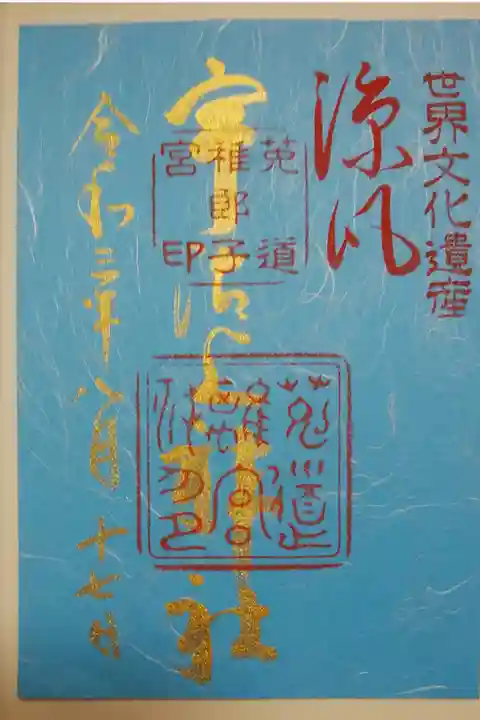 世界文化遺産
涼風
莵道
稚郎子
宮印
宇治上神社
令和三年八月十七日